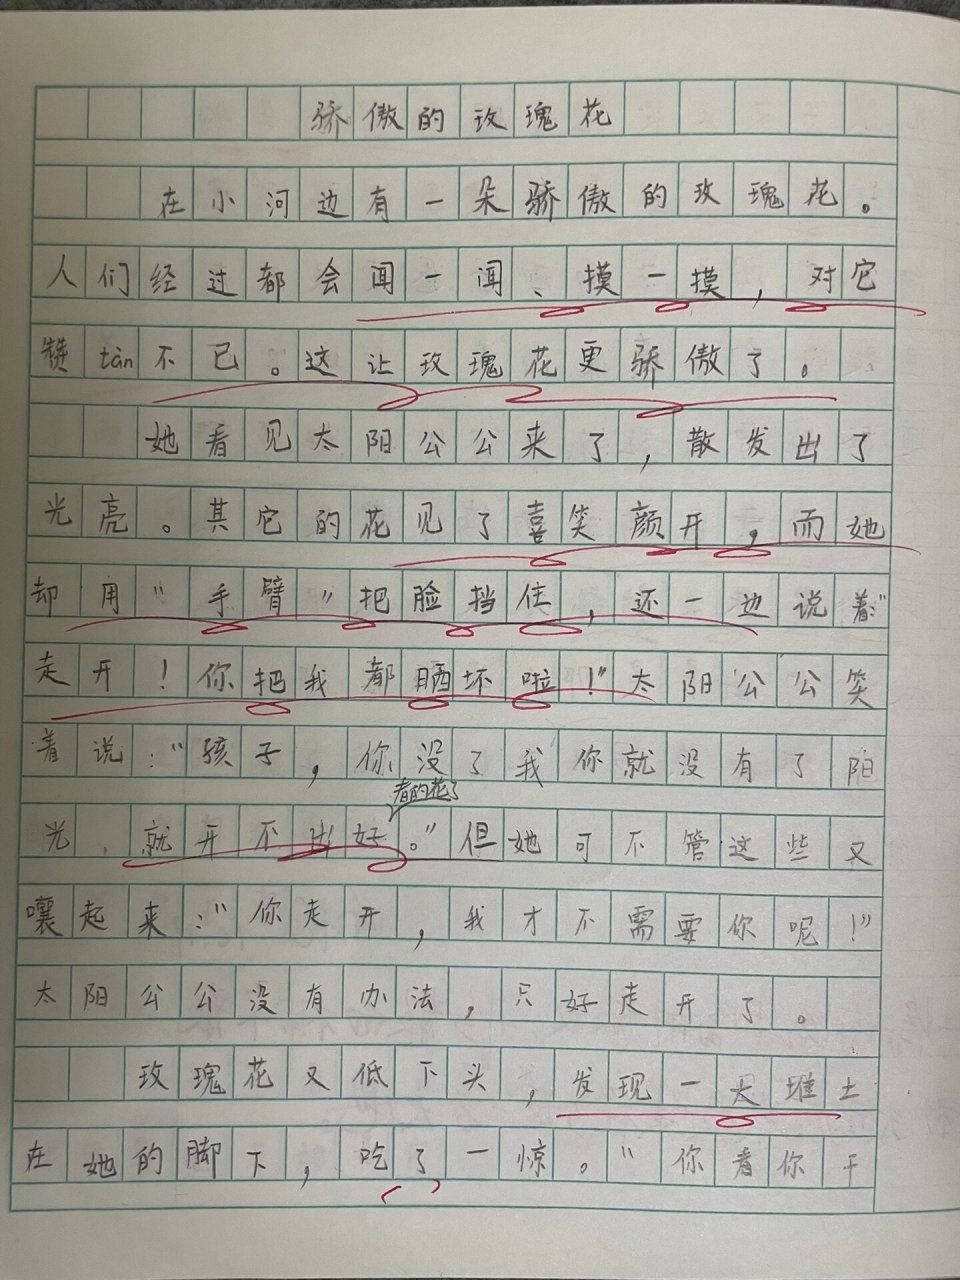 骄傲的玫瑰花
在小河边有一朵骄傲的玫瑰花。
人们经过都会闻一闻、摸一摸，对它
赞tàn不已。这让玫瑰花更骄傲了。
她看见太阳公公来了，散发出了
光亮。其它的花见了喜笑颜开，而她
却用“手臂”把脸挡住，还一边说着：“
走开！你把我都晒坏啦！”太阳公公笑
着说：“孩子，你没了我你就没有了阳
看的花了
光，就开不出好。”但她可不管这些又
嚷起来：“你走开，我才不需要你呢！”
太阳公公没有办法，只好走开了。
玫瑰花又低下头，发现一大堆土
在她的脚下，吃了一惊。“你看你干